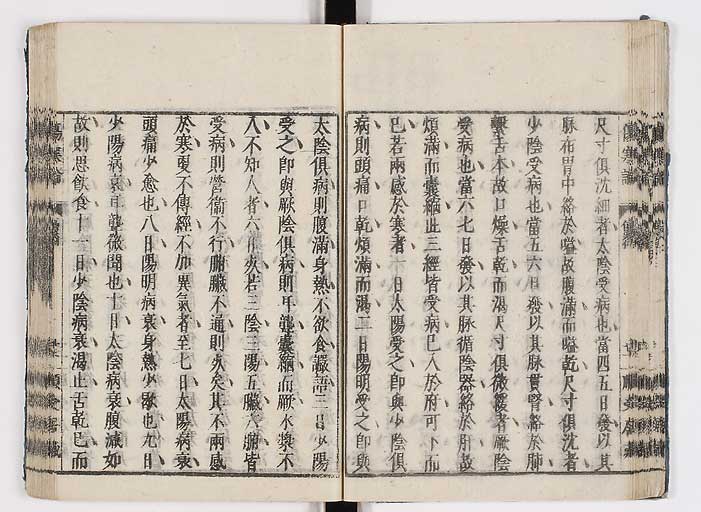 尺寸俱沈細者太陰受病也當四五日發以其
脉布胃中絡於嗌故腹滿而嗌乾尺寸俱沈者
少陰受病也當五六日發以其脉貫腎絡於肺
繫舌本故口燥舌乾而渴尺寸俱微緩者厥陰
受病也當六七日發以其脉循陰器絡於肝故
煩滿而囊縮此三經皆受病已入於府可下而
已若兩感於寒者一日太陽受之即與少陰俱
病則頭痛口乾煩滿而渴二日陽明受之即與
太陰俱病則腹滿身熱不欲食讝語三日少陽
受之即與厥陰俱病則耳聾囊縮而厥水漿不
入不知人者六日死若三陰三陽五臟六腑皆
受病則營衛不行腑臟不通則死矣其不兩感
於寒更不傳經不加異氣者至七日太陽病衰
頭痛少愈也八日陽明病衰身熱少歇也九日
少陽病衰耳聾微聞也十日太陰病衰腹減如
故則思飲食十一日少陰病衰渴止舌乾已而
傷寒論